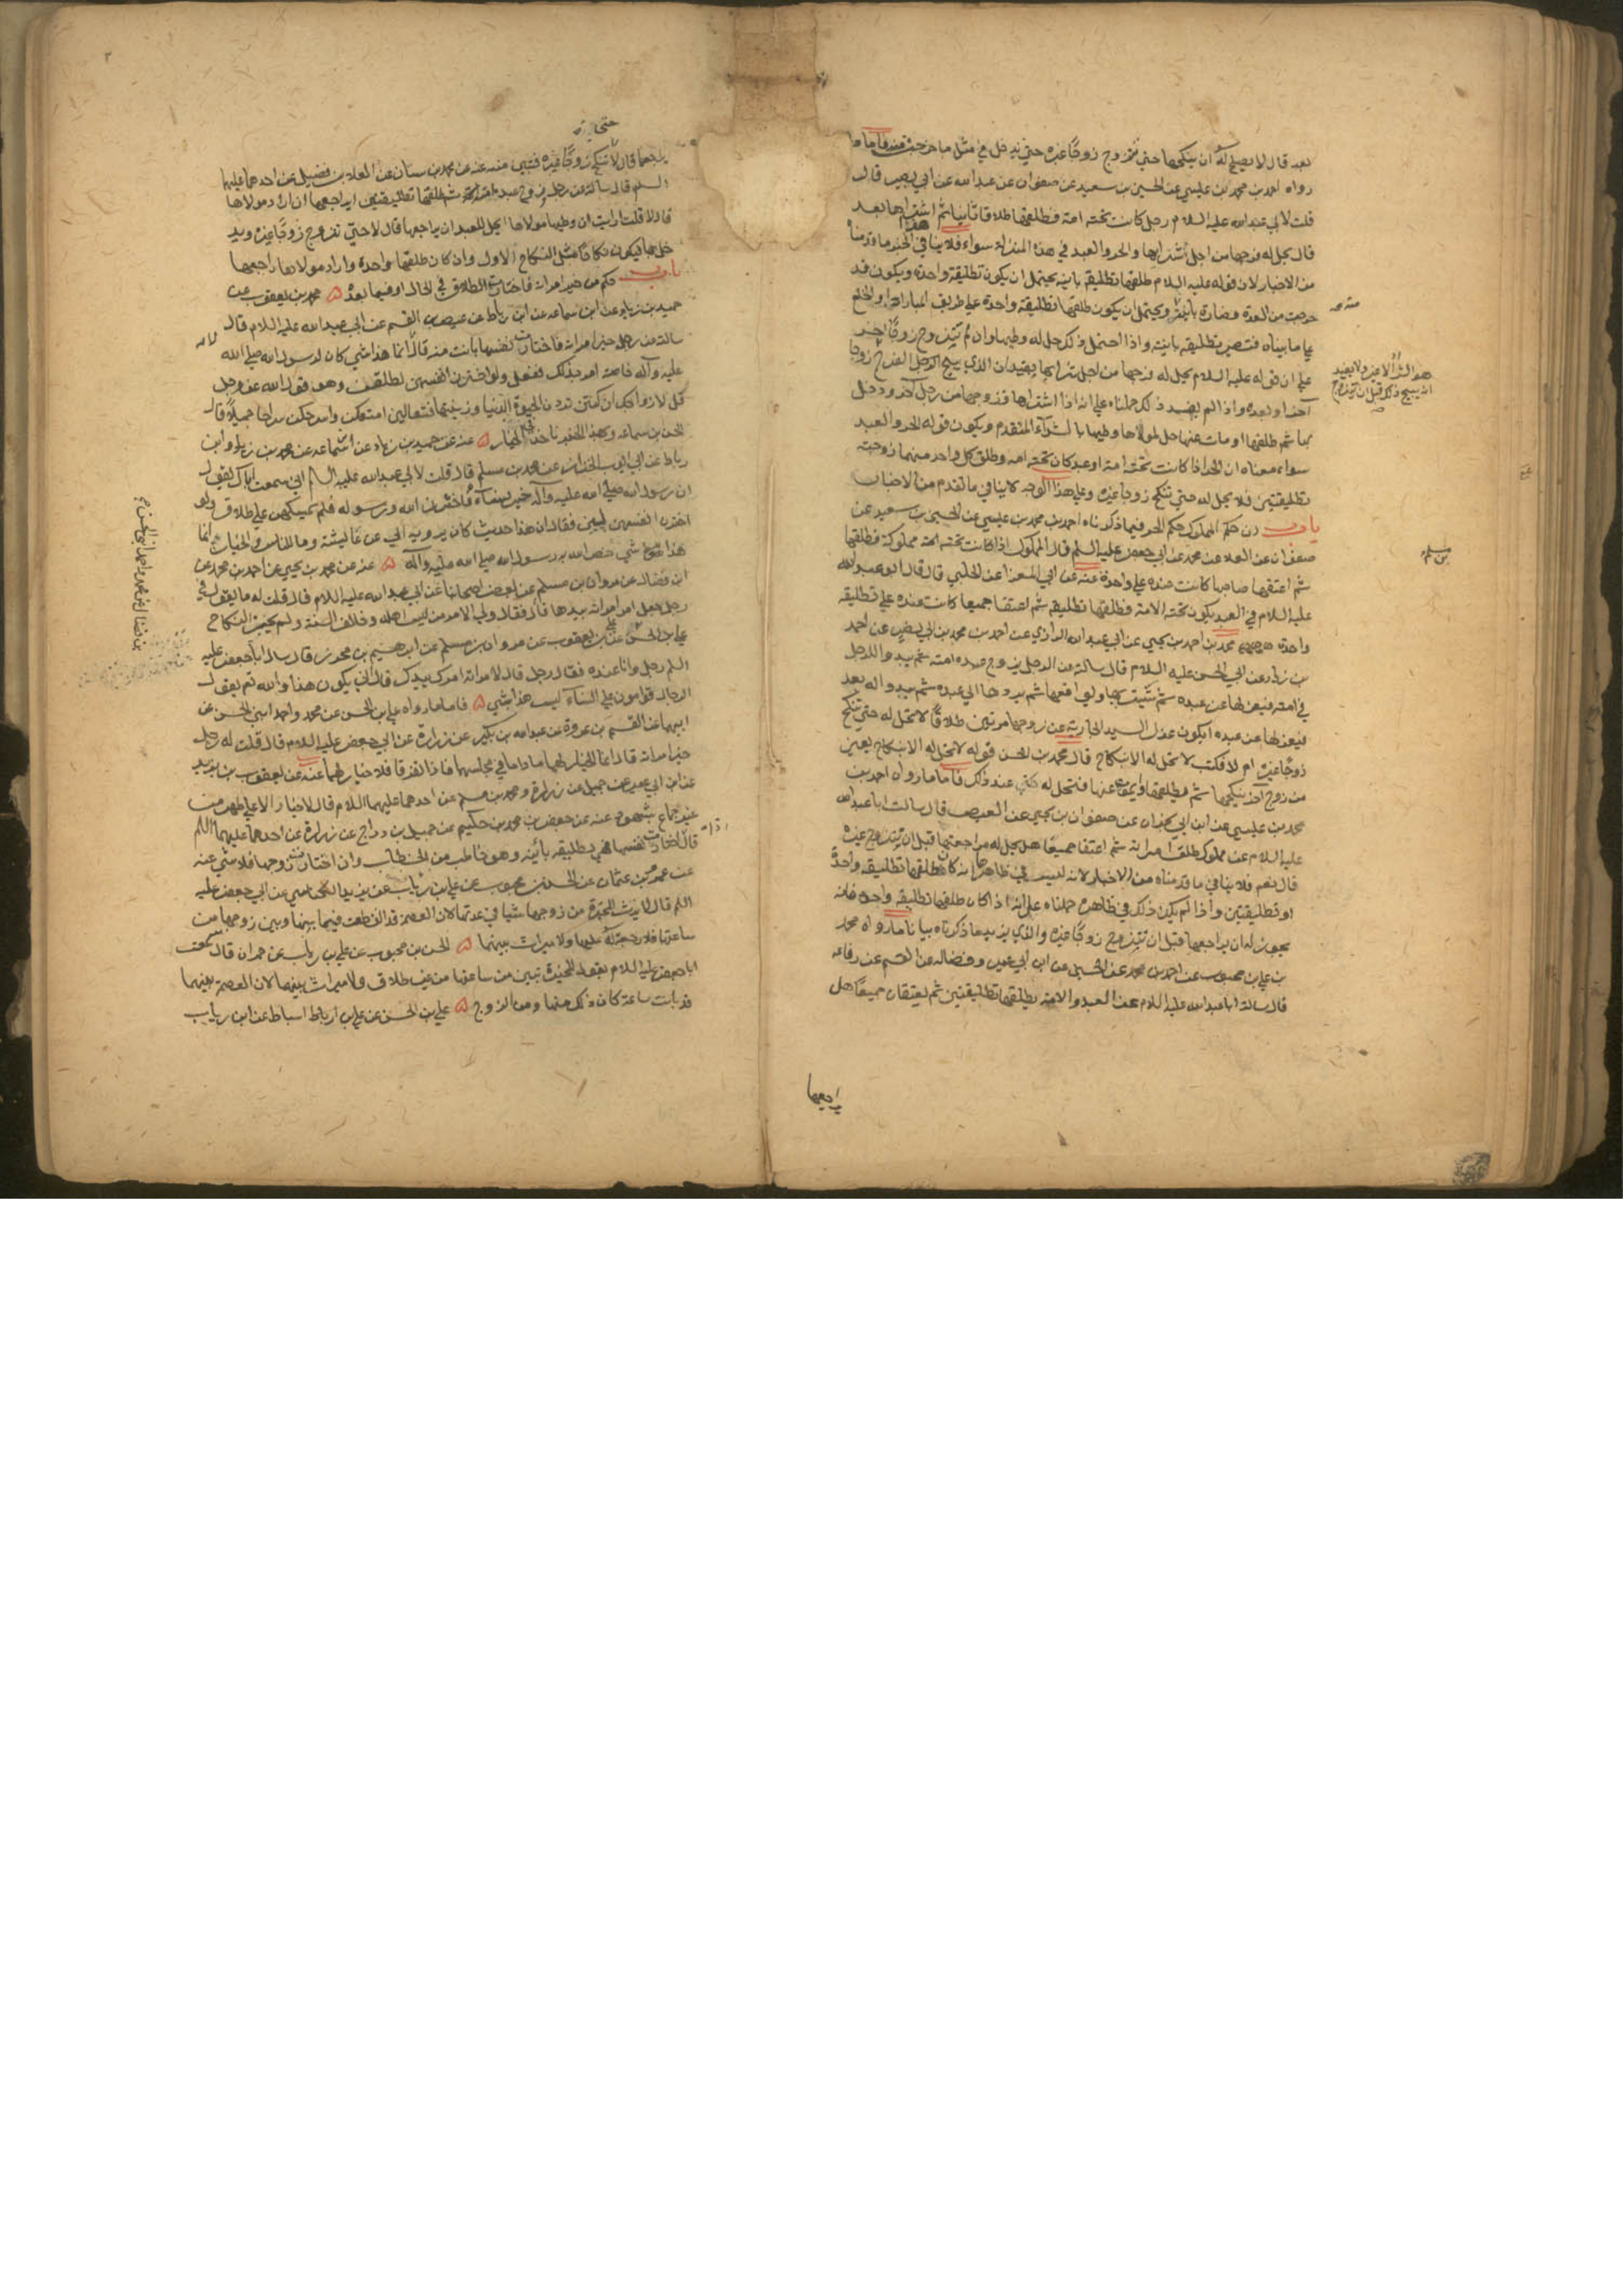 بعد قال لا يصلح له ان ينكحها حتى تتزوج زوجا غيره حتى يدخل في مثل ما خرجت منه فاما ما
رواه احمد بن محمد بن عيسى عن الحسين بن سعيد عن صفوان عن عبدالله عن ابي بصير قال
قلت لابي عبدالله عليه السلام رجل كانت تحته امة فطلقها طلاقا بائنا ثم اشتراها بعد
قال يحل له فرجها من اجل شرائها والحر والعبد في هذه المنزلة سواء فلا ينافي هذا الخبر ما قدمناه
من الاخبار لان قوله عليه السلام طلقها تطليقة بائنة يحتمل ان يكون تطليقة واحدة ويكون قد
خرجت من العدة فصارت بائنة ويحتمل ان يكون طلقها تطليقة واحدة على طريق المباراة او الخلع
على ما بيناه فتصير تطليقة بائنة واذا احتمل ذلك حل له وطيها وان لم تتزوج زوجا اخر
على ان قوله عليه السلام يحل له فرجها من اجل شرائها يفيد ان الذي يبيح الرجل الفرج
آخر او بعده واذا لم يفسد ذلك حملناه على انه اذا اشتراها فزوجها من رجل آخر ودخل
بها ثم طلقها او مات عنها حل لمولاها وطيها بالشراء المتقدم ويكون قوله الحر والعبد
سواء معناه ان الحر اذا كانت تحته امة او عبد كان تحته امة وطلق كل واحد منهما زوجته
تطليقتين فلا يحل له حتى تنكح زوجا غيره وعلى هذا الوجه لا ينافي ما تقدم من الاخبار
باب ان حكم المملوك حكم الحر فيما ذكرناه احمد بن محمد بن عيسى عن الحسين بن سعيد عن
صفوان عن العلا عن محمد عن ابي جعفر عليه السلم قال المملوك اذا كانت تحته مملوكة فطلقها
ثم اعتقها صاحبها كانت عنده على واحدة عنه عن ابي المعزا عن الحلبي قال قال ابو عبدالله
عليه السلام في العبد يكون تحته الامة فطلقها تطليقة ثم اعتقا جميعا كانت عنده على تطليقة
واحدة محمد بن احمد بن يحيى عن ابي عبدالله الرازي عن احمد بن محمد بن ابي نصر عن احمد
بن زياد عن ابي الحسن عليه السلام قال سالته عن الرجل يزوج عبده امته ثم يبدو للرجل
في امته فيعزلها عن عبده ثم يستبرئها ويواقعها ثم يردها الى عبده ثم يبدو له بعد
فيعزلها عن عبده ايكون عزل السيد الجارية عن زوجها مرتين طلاقا لا تحل له حتى تنكح
زوجا غيره ام لا فكتب لا تحل له الا بنكاح قال محمد بن الحسن قوله لا تحل له الا بنكاح يعني
من زوج آخر ينكحها ثم يطلقها عنها فتحل له عند ذلك فاما ما رواه احمد بن
محمد بن عيسى عن ابن ابي نجران عن صفوان بن يحيى عن العيص قال سالت ابا عبدالله
عليه السلام عن مملوك طلق امراته ثم اعتقا جميعا هل يحل له مراجعتها قبل ان تتزوج غيره
قال نعم فلا ينافي ما قدمناه من الاخبار لانه ليس في ظاهره انه كان طلقها تطليقة واحدة
او تطليقتين واذا لم يكن ذلك في ظاهره حملناه على انه اذا كان طلقها تطليقة واحدة فانه
يجوز له ان يراجعها قبل ان تتزوج زوجا غيره والذي يزيد ما ذكرناه بيانا ما رواه محمد
بن علي بن محبوب عن احمد بن محمد عن الحسين عن ابن ابي عمير وفضاله عن القسم عن رفاعه
قال سالت ابا عبدالله عليه السلام عن العبد والامة يطلقها تطليقتين ثم يعتقان جميعا هل
يراجعها
يراجعها قال لا حتى تنكح زوجا غيره فتبين منه عنه عن محمد بن سنان عن العلا بن فضيل عن احدهما عليهما
السلم قال سالته عن رجل زوج عبده امته ثم طلقها تطليقتين ايراجعها ان اراد مولاها
قال لا قلت ارايت ان وطيها مولاها ايحل للعبد ان يراجعها قال لا حتى تتزوج زوجا غيره ويد
خل بها فيكون نكاحا مثل النكاح الاول وان كان طلقها واحدة واراد مولاها راجعها
باب حكم من خير امراته فاختارت الطلاق في الحال او فيما بعده محمد بن يعقوب عن
حميد بن زياد عن ابن سماعه عن ابن رباط عن عيص بن القسم عن ابي عبدالله عليه السلام قال
سالته عن رجل خير امراته فاختارت نفسها بانت منه قال لا انما هذا شي كان لرسول الله صلى الله
عليه وآله خاصة امر بذلك ففعل ولو اخترن انفسهن لطلقهن وهو قول الله عز وجل
قل لازواجك ان كنتن تردن الحيوة الدنيا وزينتها فتعالين امتعكن واسرحكن سراحا جميلا قال
الحسن بن سماعه وبهذا الخبر ناخذ في الخيار عنه عن حميد بن زياد عن ابن سماعه عن محمد بن زياد وابن
رباط عن ابي ايوب الخزاز عن محمد بن مسلم قال قلت لابي عبدالله عليه السلم اني سمعت اباك يقول
ان رسول الله صلى الله عليه وآله خير نساءه فاخترن الله ورسوله فلم يمسكهن على طلاق ولو
اخترن انفسهن لبن فقال ان هذا حديث كان يرويه ابي عن عائشة وما للناس والخيار انما
هذا شي خص الله به رسول الله صلى الله عليه وآله عنه عن محمد بن يحيى عن احمد بن محمد عن
ابن فضال عن مروان بن مسلم عن بعض اصحابنا عن ابي عبدالله عليه السلام قال قلت له ما تقول في
رجل جعل امر امراته بيدها قال فقال ولى الامر من ليس اهله وخالف السنة ولم يجز النكاح
علي بن الحسن عن يعقوب عن مروان بن مسلم عن ابرهيم بن محرز قال سال ابا جعفر عليه
السلم رجل وانا عنده فقال رجل قال لامراته امرك بيدك قال انى يكون هذا والله تع يقول
الرجال قوامون على النساء ليس هذا بشي فاما ما رواه علي بن الحسن عن محمد واحمد ابني الحسن عن
ابيهما عن القسم بن عروة عن عبدالله بن بكير عن زرارة عن ابي جعفر عليه السلام قال قلت له رجل
خير امراته قال انما الخيار لهما ما داما في مجلسهما فاذا تفرقا فلا خيار لهما عنه عن يعقوب بن يزيد
عن ابن ابي عمير عن جميل عن زرارة ومحمد بن مسلم عن احدهما عليهما السلام قال لا خيار الا على طهر من
غير جماع بشهود عنه عن جعفر بن محمد بن حكيم عن جميل بن دراج عن زرارة عن احدهما عليهما السلم
قال اذا اختارت نفسها فهي تطليقة بائنة وهو خاطب من الخطاب وان اختارت زوجها فلا شي عنه
عن عمرو بن عثمان عن الحسن بن محبوب عن علي بن رئاب عن يزيد الكناسي عن ابي جعفر عليه
السلم قال لا ترث المخيرة من زوجها شيئا في عدتها لان العصمة قد انقطعت فيما بينها وبين زوجها من
ساعتها فلا رجعة له عليها ولا ميراث بينهما الحسن بن محبوب عن علي بن رئاب عن حمران قال سمعت
ابا جعفر عليه السلام يقول المخيرة تبين من ساعتها من غير طلاق ولا ميراث بينهما لان العصمة بينهما
قد بانت ساعة كان ذلك منها ومن الزوج علي بن الحسن عن علي بن اسباط عن ابن رياب